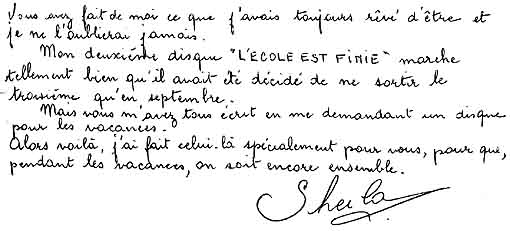 Vous avez fait de moi ce que j'avais toujours rêvé d'être et
je ne l'oublierai jamais.
Mon deuxième disque "L'ECOLE EST FINIE" marche
tellement bien qu'il avait été décidé de ne sortir le
troisième qu'en septembre.
Mais vous m'avez tous écrit en me demandant un disque
pour les vacances.
Alors voilà, j'ai fait celui-là spécialement pour vous, pour que,
pendant les vacances, on soit encore ensemble.
Sheila